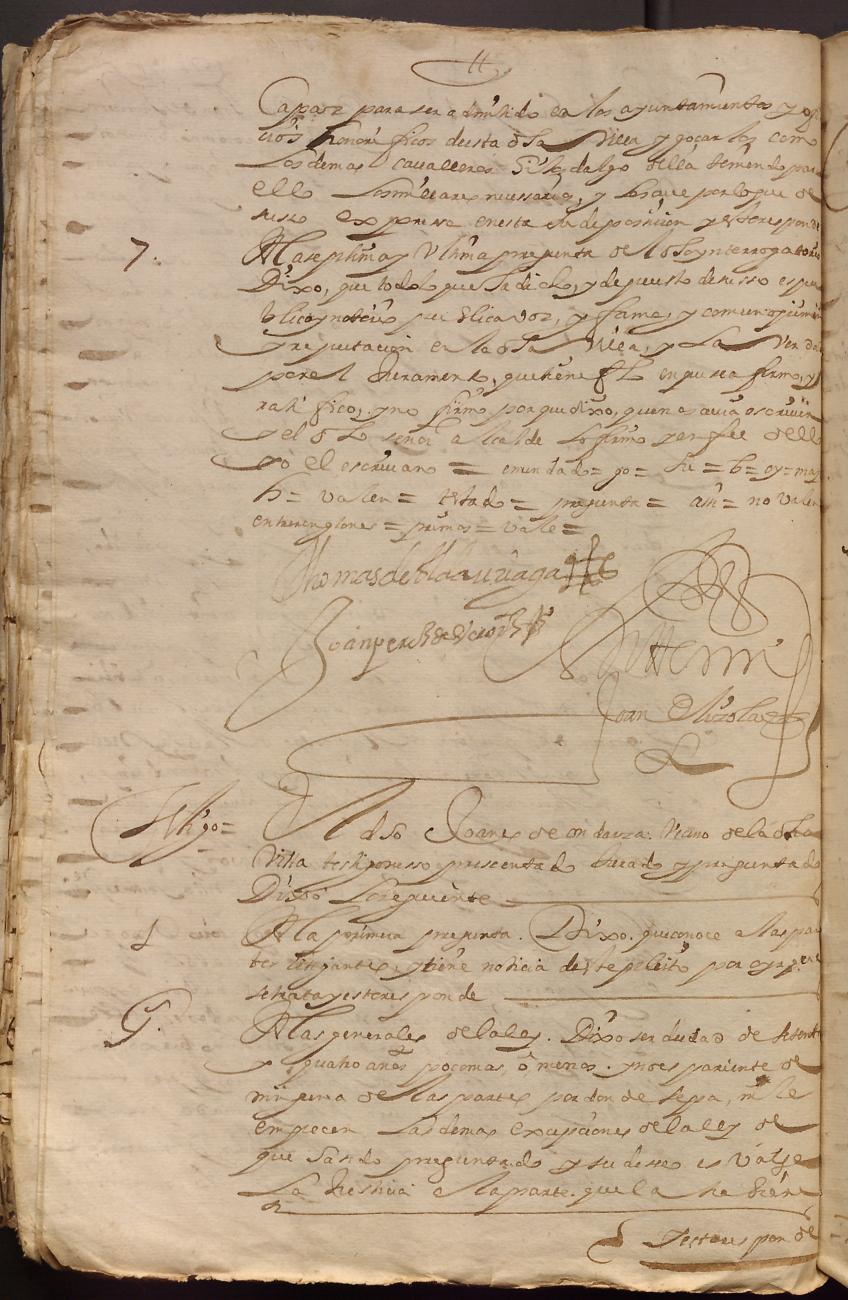 Capaz para ser admitido en los ayuntamientos y ofi
cios honorificos desta dha Villa y goçarlos como
los demas cavalleros hijos dalgo della teniendo para
ello los millares necesarios, y los que por lo que de
suso expresa en esta su deposicion y esto responde
7. A la septima y Ultima pregunta del dho ynterrogatorio
Dixo, que todo lo que ha dicho, y depuesto de susso es pu
blico y notorio publica voz, y fama, y comun opinion
y reputacion en la dha Villa, y la Verdad
para el Juramento, que tiene fho en que se afirmo, y
ratifico, y no firmo porque dixo, que no savia escriuir
y el dho señor alcalde lo firmo y en fee dello
yo el escriuano = emendado = go = su = b = oy = may
h = valen = testado = pregunta = asi = no valen
entrerenglones = primos = vale =
Thomas de
Joan perez de
Ante mi
Joan de
Thgo =
El dho Joanes de ondarza. Vezino de la dha
Villa testigo russo pressentado Jurado y preguntado
Dixo lo siguiente
1 A la primera pregunta. Dixo. que conoce a las par
tes litigantes, y tiene noticia deste pleito por
se trata y esto responde
G. A las generales de la ley. Dixo ser de edad de setenta
y quatro años poco mas, o menos. y no es pariente de
ninguna de las partes por donde sepa, ni le
empecen las demas excepciones de la ley de
que ha sido preguntado y su deseo es Valga
La Justicia a la parte. que la tubiere
Y esto responde